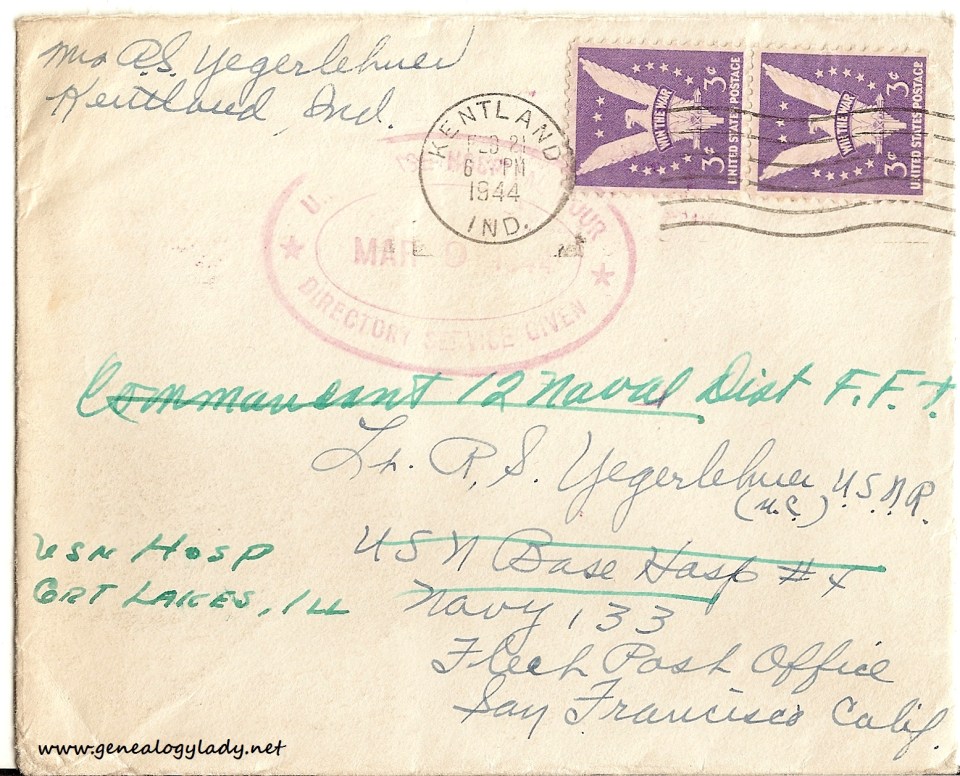 Mrs R.S. Yegerlehner
Kentland, Ind.
KENTLAND
FEB 21
6 PM
1944
IND.
WIN THE WAR
3¢ 3¢
UNITED STATES POSTAGE
WIN THE WAR
3¢ 3¢
UNITED STATES POSTAGE
U.
MAR 9 1944
DIRECTORY SERVICE GIVEN
Commandant 12 Naval Dist F.F.T.
Lt. R.S. Yegerlehner U.S.N.R.
(M.C.)
USN Base Hosp #4
Navy 133
Fleet Post Office
San Francisco Calif.
USN HOSP
GRT LAKES, ILL
www.genealogylady.net